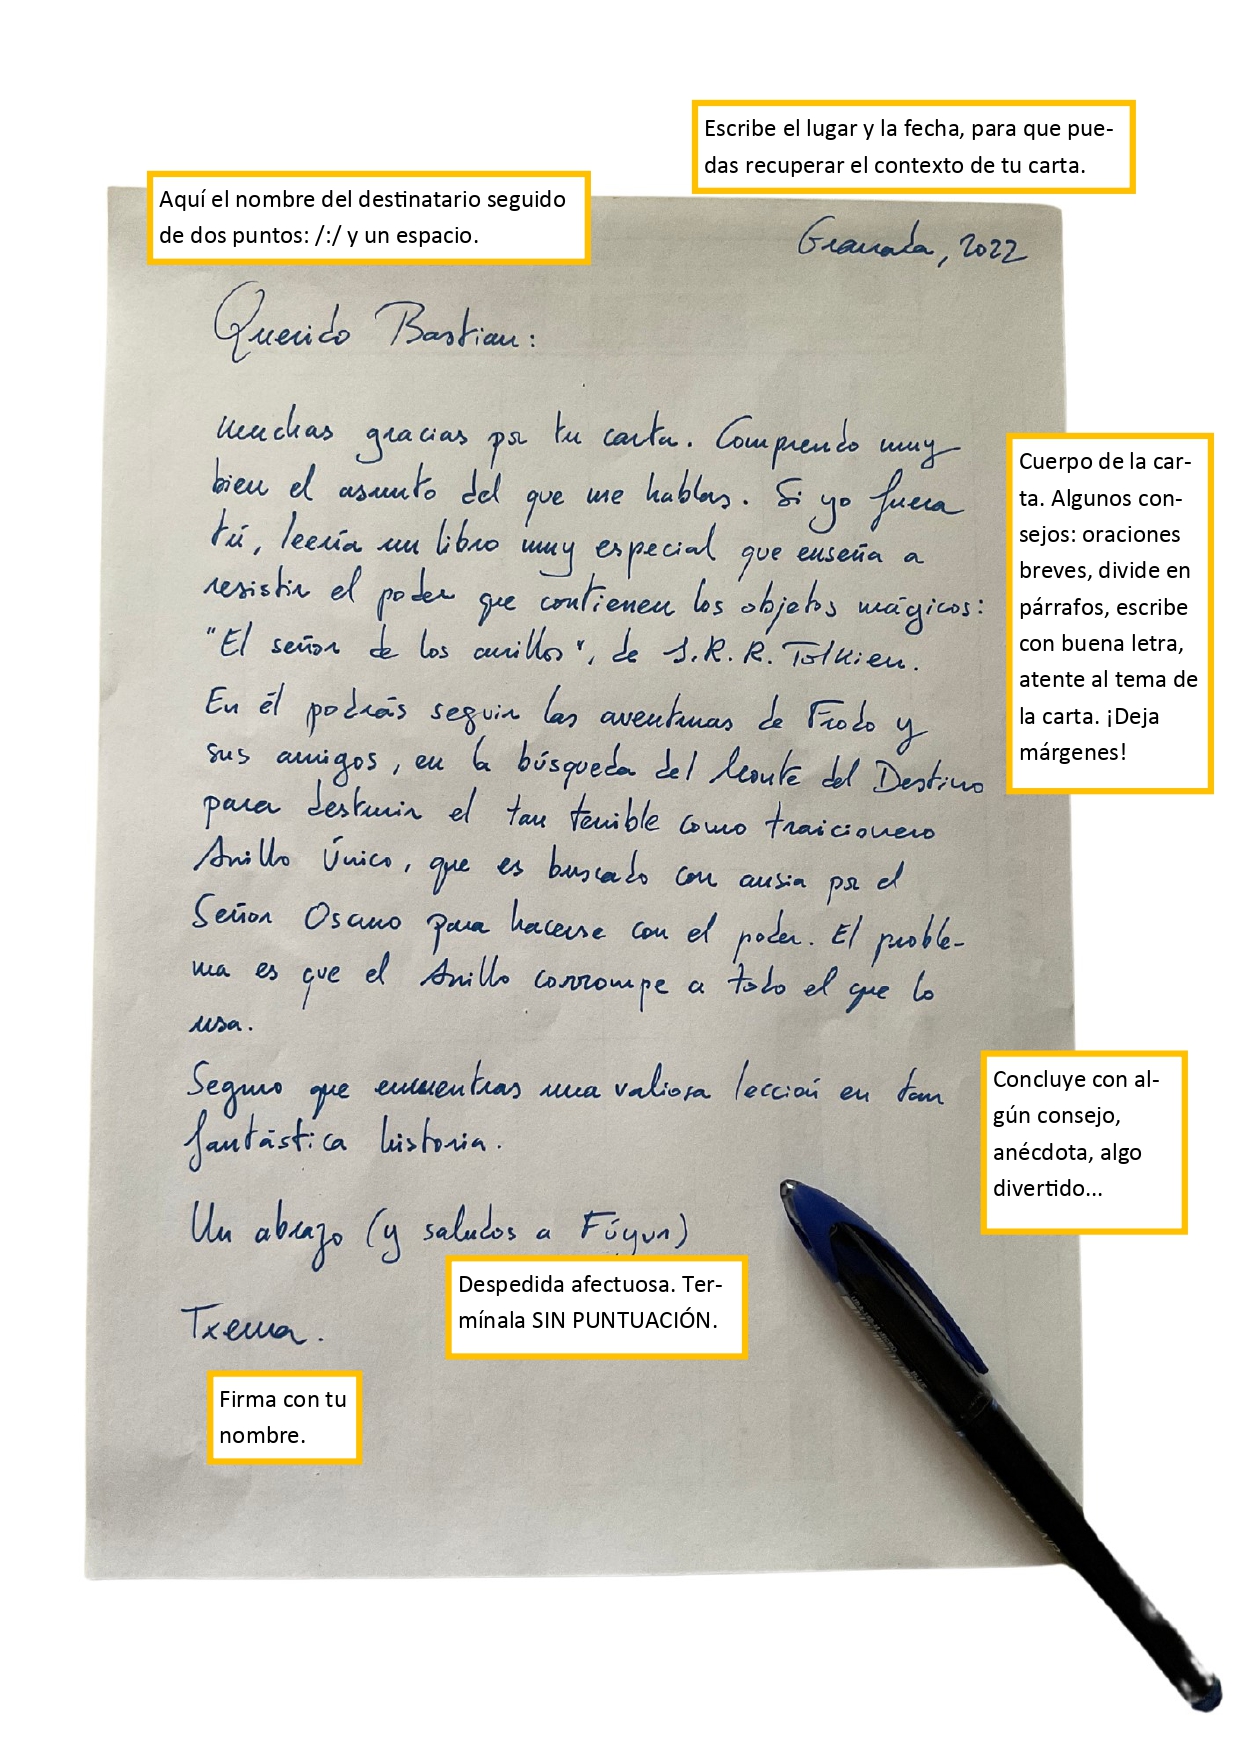 Escribe el lugar y la fecha, para que pue-
das recuperar el contexto de tu carta.
Aquí el nombre del destinatario seguido
de dos puntos: /:/ y un espacio.
Granada, 2022
Querido Bastian:
muchas gracias por tu carta. Comprendo muy
bien el asunto del que me hablas. Si yo fuera
tú, leería un libro muy especial que enseña a
resistir el poder que contienen los objetos mágicos:
"El señor de los anillos", de J.R.R. Tolkien.
En él podrás seguir las aventuras de Frodo y
sus amigos, en la búsqueda del Monte del Destino
para destruir el tan terrible como traicionero
Anillo Único, que es buscado con ansia por el
Señor Oscuro para hacerse con el poder. El proble-
ma es que el Anillo corrompe a todo el que lo
usa.
Seguro que encuentras una valiosa lección en tan
fantástica historia.
Un abrazo (y saludos a Fújur)
Txema.
Cuerpo de la car-
ta. Algunos con-
sejos: oraciones
breves, divide en
párrafos, escribe
con buena letra,
atente al tema de
la carta. ¡Deja
márgenes!
Concluye con al-
gún consejo,
anécdota, algo
divertido...
Despedida afectuosa. Ter-
mínala SIN PUNTUACIÓN.
Firma con tu
nombre.